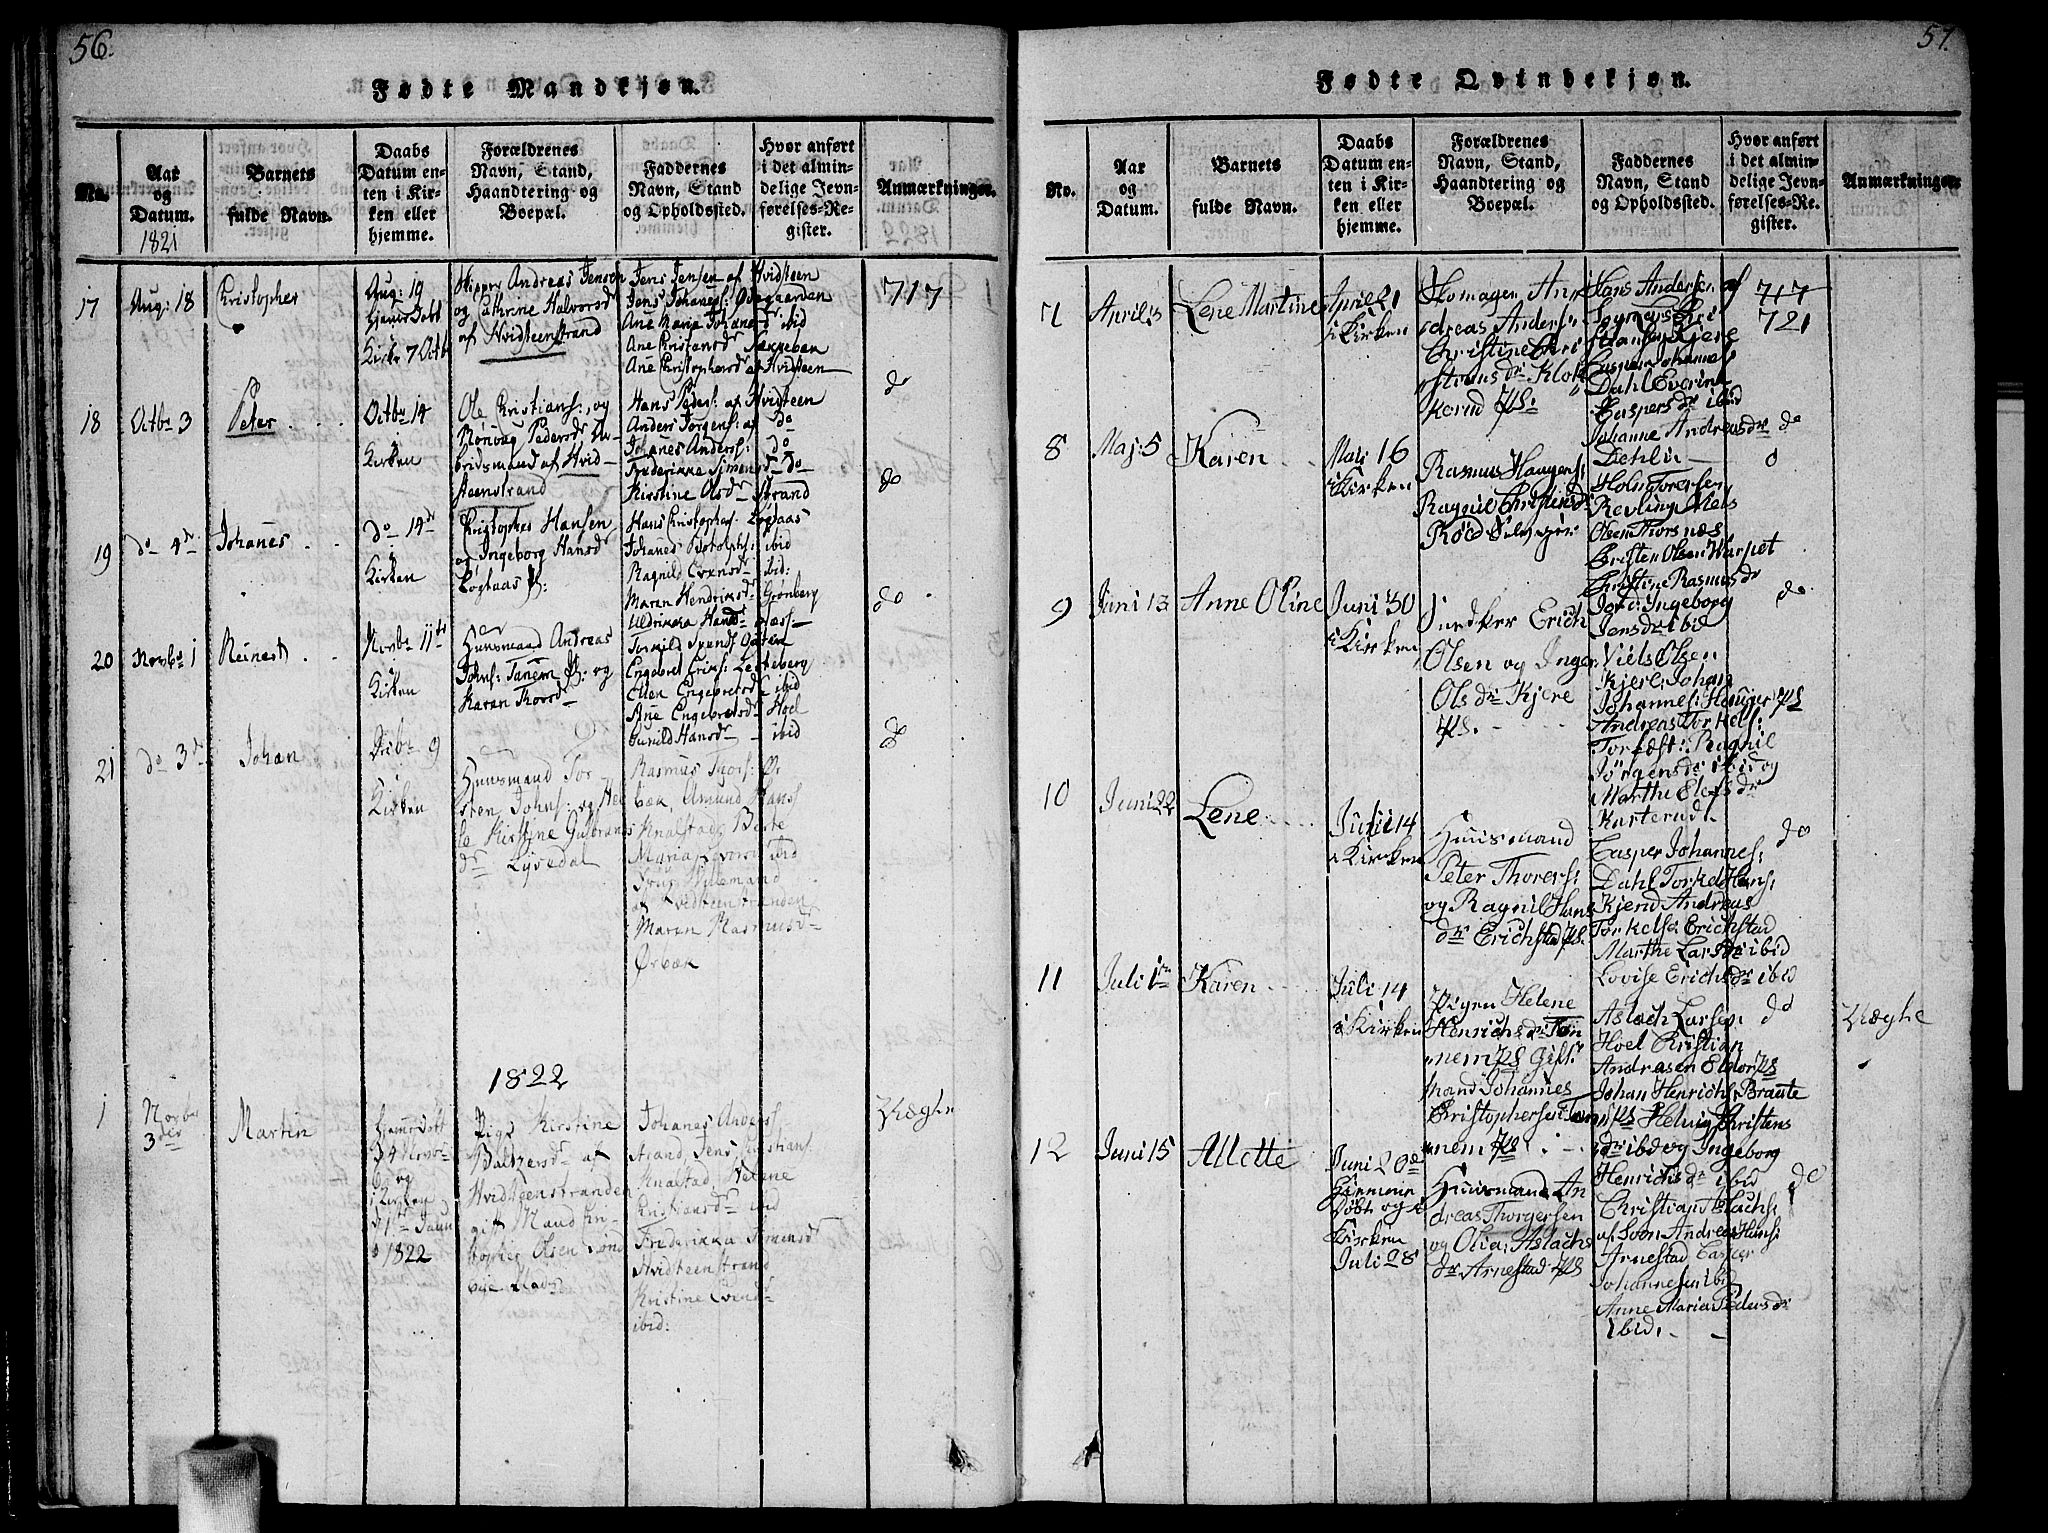 56.
Fødte Mandkjøn.
No.
Aar og Datum. 1821
Barnets fulde Navn.
Daabs Datum enten i Kirken eller hjemme.
Forældrenes Navn, Stand, Haandtering og Boepæl.
Faddernes Navn, Stand og Opholdssted.
Hvor anført i det almindelige Jevnførelses-Register.
Anmærkninger.
17
Aug: 18
Christopher
Aug: 19
Hjemedøbt
Kirke 7 Octb
Skipper Andreas Jensen
og Cathrine Halvorsdr
af Hvidteenstrand
Jens Jensen af Hvidsteen
Jens Johanes: Ovegaarden
Ane Maria Johanesd ibid
Ane Christansdr
Ane Christophersdr af Hvidteen
717
18
Octbr 3
Peter
Octbr 14
Kirken
Ole Christians: og
Rönvog Pedersdr Ar-
beidsmand af Hvid-
steenstrand
Hans Peders: af Hvidteen
Anders Jørgens: af do
Johanes Anders: do
Frederikke Simensd do
Kirstine Olsdr Strand
do
19
do 4de
Johanes
do 14de
Kirken
Christopher Hansen
og Ingeborg Hansdr
Loglaas
Hans Christophers: Loglaas
Johanes Botolphs: ibid
Ragnild Evensdr ibid:
Maren Hendriksdr Grønberg
Uldrikka Hansdr
do
20
Novbr 1
Reinert
Novbr 11te
Kirken
Huusmand Andreas
Johns: Tanem Ps: og
Karen Thorsdr
Torkild Svends
Engebret Eriks: Lekkeberg
Ellen Engebretsdr ibid
Ane Engebretsdr Hoel
Gunild Hansdr ibid
do
21
do 3de
Johan
Decbr 9
Kirken
Huusmand Tor-
sten Johns: og
Kirstine Gulbrans
dr Lysedal
Rasmus Thors: Ør
bek, Amund Hans
Knalstad, Berte
Maria ibid
af Hvidteenstranden
Maren Rasmusdr
Ørbæk
do
1822
1
Novbr
3die
Martin
Hjemedøbt
d 4 Novbr
og
i Kirken
1822
Pige Kirstine
Baltzersdr af
Hvidteenstranden
gift Mand Chri-
stopher Olsen
Johanes Anders
Strand, Jens Christians
Knalstad, Helene
Christiansdr ibid
Frederikka Simensdr
Hvidteenstrand
Kristine Evensdr
ibid:
Uægte
57.
Fødte Qvindekjøn.
No.
Aar og Datum.
Barnets fulde Navn.
Daabs Datum enten i Kirken eller hjemme.
Forældrenes Navn, Stand, Haandtering og Boepæl.
Faddernes Navn, Stand og Opholdssted.
Hvor anført i det almindelige Jevnførelses-Register.
Anmærkninger.
7
April 13
Lene Martine
April 21
i Kirken
Skomager An
dreas Anders:
Christine Chri
stians dr Klok
kerud Ps:
Hans Andersen af
Casper Johannes
Dahl Everine
Caspers dr ibid
Johanne Andreasdr
Dehlin
717
721
8
Maj: 5
Karen
Mai 16
i Kirken
Rasmus Haagens:
Ragnil Christensdr
Røed
Holm Torersen
Revling Niels
Olsen Thorsnæs
Cristen Olsen Warpet
Christine Rasmusdr
do
9
Juni 13
Anne Oline
Juni 30
i Kirken
Snedker Erich
Olsen og Inger
Ols dr Kjere
Ps.
Ingeborg
Jensdr ibid
Niels Olsen
Kjere Johan
Johannes: Hauger Ps
Andreas Torkels:
Torfæst: Ragnil
Jörgens dr ibid og
Marthe Elefs dr
Kasterud.
do
10
Juni 22
Lene
Julii 14
i Kirken
Huusmand
Peter Thorers:
og Ragnil Hans
dr Erichstad Ps.
Casper Johannes:
Dahl Torkel Hans:
Kjend Andreas
Torkelse Erichstad
Marthe Lars dr ibid
Lovise Erichs dr ibid
do
11
Juli 1te
Karen
Juli 14
i Kirken
Pigen Helene
Henrichs dr Tan
nem Ps Gift
mand Johannes
Christophersen Tan
nem Ps
Aslach Larsen
Hoel Cristian
Andrasen Eldor Ps
Johan Henrichs: Braate
Ps Helvig Kristens
dr ibid og Ingeborg
Henrichs dr ibid
do
Uægte
12
Juni 15
Allette
Juni 20de
Hiemme
Døbt og i
Kirken
Juli 28
Huusmand An
dreas Thorgersen
og Olia Aslachs
dr Arnestad Ps
Christian Aslachs:
af Soon Andreas Hans:
Arnestad Casper
Johannesen ibid
Anne Maria Peders dr
ibid.
do